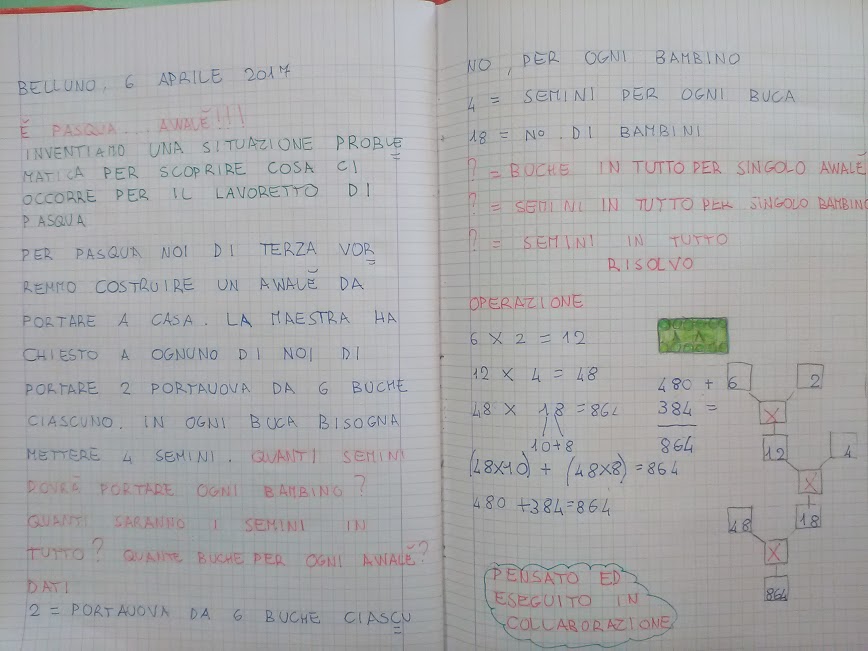 BELLUNO, 6 APRILE 2017
È PASQUA... AWALÈ!!!
INVENTIAMO UNA SITUAZIONE PROBLE
MATICA PER SCOPRIRE COSA CI
OCCORRE PER IL LAVORETTO DI
PASQUA
PER PASQUA NOI DI TERZA VOR
REMMO COSTRUIRE UN AWALÈ DA
PORTARE A CASA. LA MAESTRA HA
CHIESTO A OGNUNO DI NOI DI
PORTARE 2 PORTAUOVA DA 6 BUCHE
CIASCUNO. IN OGNI BUCA BISOGNA
METTERE 4 SEMINI. QUANTI SEMINI
DOVRÀ PORTARE OGNI BAMBINO?
QUANTI SARANNO I SEMINI IN
TUTTO? QUANTE BUCHE PER OGNI AWALÈ?
DATI
2 = PORTAUOVA DA 6 BUCHE CIASCU
NO, PER OGNI BAMBINO
4 = SEMINI PER OGNI BUCA
18 = NO. DI BAMBINI
? = BUCHE IN TUTTO PER SINGOLO AWALÈ
? = SEMINI IN TUTTO PER SINGOLO BAMBINO
? = SEMINI IN TUTTO
RISOLVO
OPERAZIONE
6 X 2 = 12
12 X 4 = 48
48 X 18 = 864
10+8
(48X10) + (48X8) = 864
480 + 384 = 864
480 +
384 =
864
6 2
X
12 4
X
48 18
X
864
PENSATO ED
ESEGUITO IN
COLLABORAZIONE